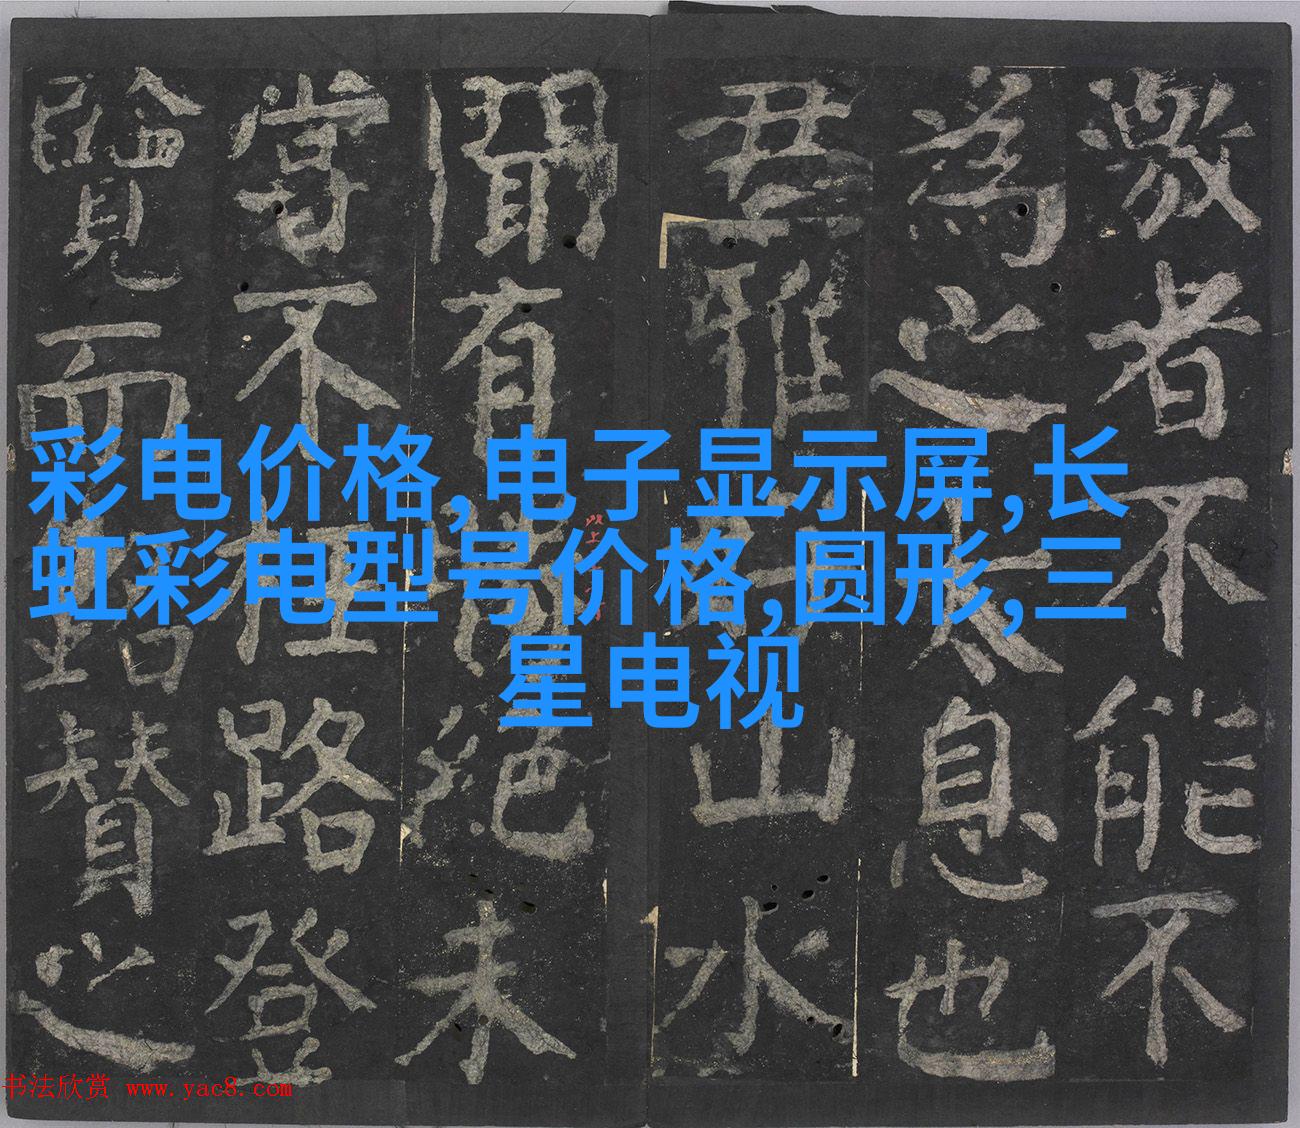 彩电价格,电子显示屏,长
虹彩电型号价格,圆形,三
星电视
激者不能不
為之太息也
君雅山水
聞有絕未
嘗不枉路登
覽而贊之
书法欣赏 www.yac8.com